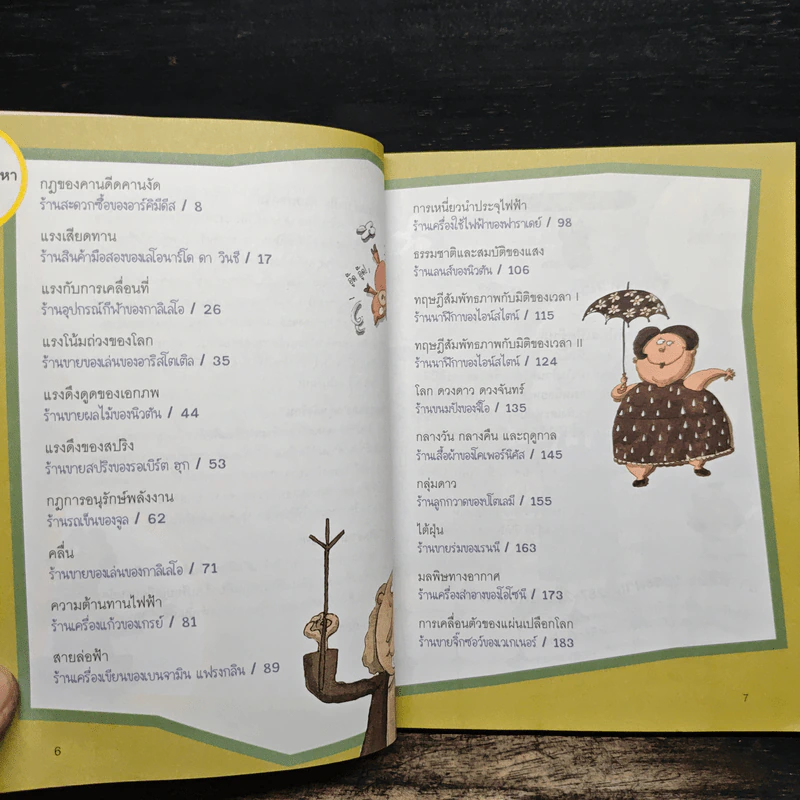 หา
กฎของคานดีดคานงัด
ร้านสะดวกซื้อของอาร์คิมีดีส / 8
แรงเสียดทาน
ร้านสินค้ามือสองของเลโอนาร์โด ดา วินชี / 17
แรงกับการเคลื่อนที่
ร้านอุปกรณ์กีฬาของกาลิเลโอ / 26
แรงโน้มถ่วงของโลก
ร้านขายของเล่นของอาริสโตเติล / 35
แรงดึงดูดของเอกภพ
ร้านขายผลไม้ของนิวตัน / 44
แรงดึงของสปริง
ร้านขายสปริงของรอเบิร์ต ฮุก / 53
กฎการอนุรักษ์พลังงาน
ร้านรถเข็นของจูล / 62
คลื่น
ร้านขายของเล่นของกาลิเลโอ / 71
ความต้านทานไฟฟ้า
ร้านเครื่องแก้วของเกรย์ / 81
สายล่อฟ้า
ร้านเครื่องเขียนของเบนจามิน แฟรงกลิน / 89
6
การเหนี่ยวนำประจุไฟฟ้า
ร้านเครื่องใช้ไฟฟ้าของฟาราเดย์ / 98
ธรรมชาติและสมบัติของแสง
ร้านเลนส์ของนิวตัน / 106
ทฤษฎีสัมพัทธภาพกับมิติของเวลา I
ร้านนาฬิกาของไอน์สไตน์ / 115
ทฤษฎีสัมพัทธภาพกับมิติของเวลา II
ร้านนาฬิกาของไอน์สไตน์ / 124
โลก ดวงดาว ดวงจันทร์
ร้านขนมปังของจี๊อ / 135
กลางวัน กลางคืน และฤดูกาล
ร้านเสื้อผ้าของโคเพอร์นิคัส / 145
กลุ่มดาว
ร้านลูกกวาดของปโตเลมี / 155
ไต้ฝุ่น
ร้านขายร่มของเรนนี / 163
มลพิษทางอากาศ
ร้านเครื่องสำอางของโอโซนี / 173
การเคลื่อนตัวของแผ่นเปลือกโลก
ร้านขายจิ๊กซอว์ของเวเกเนอร์ / 183
7